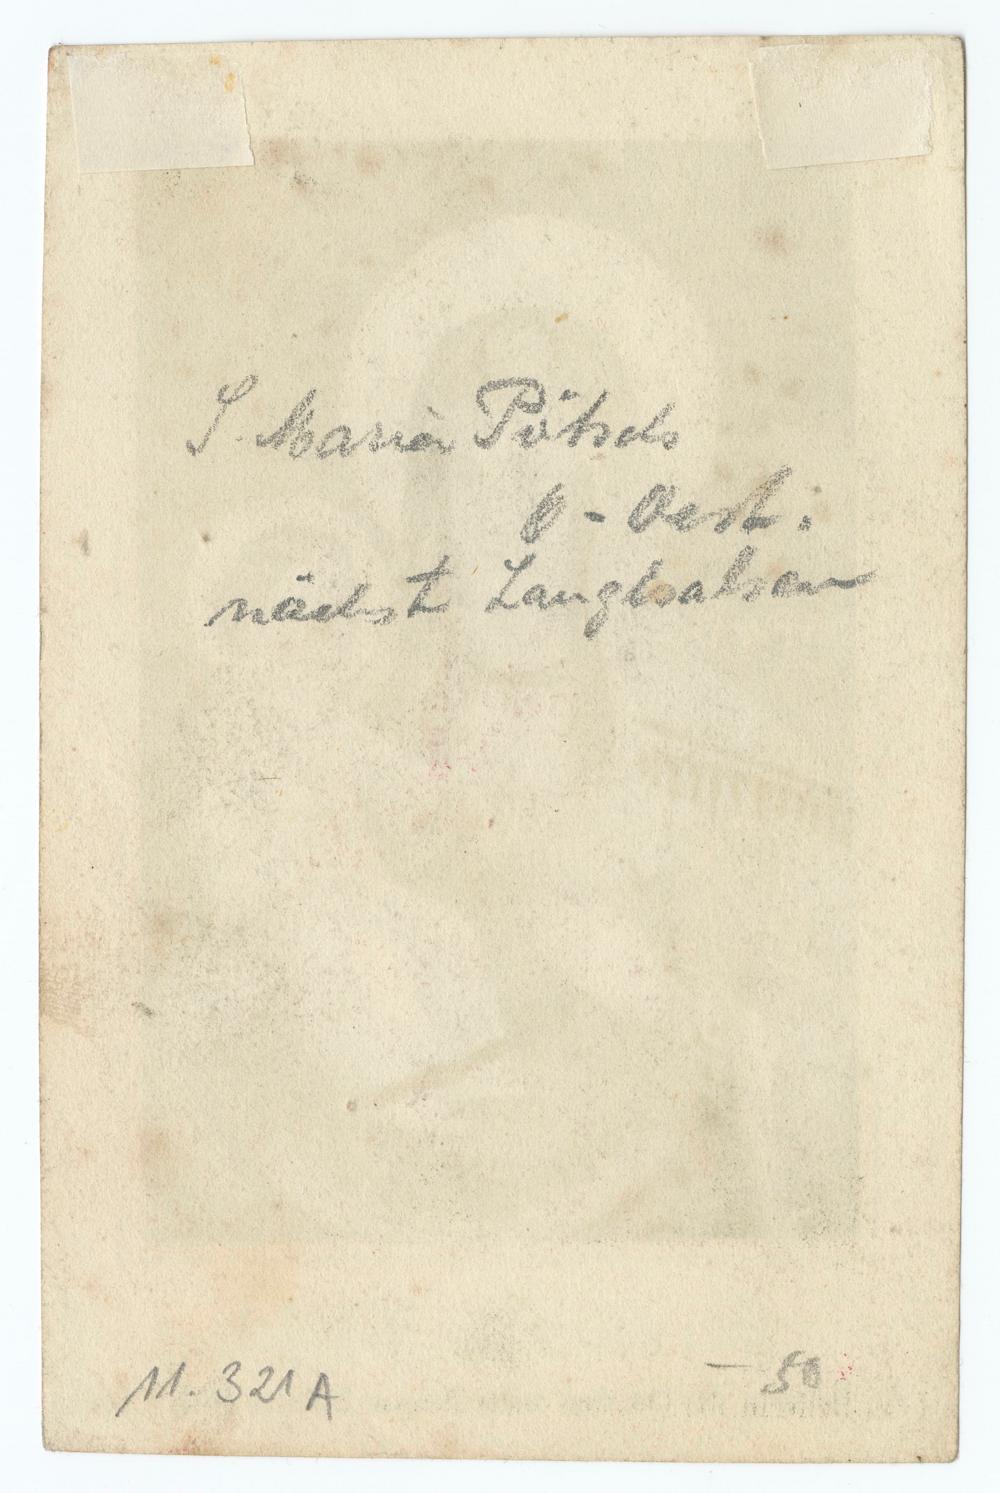 S. Maria Pötsch
O-Oest.
nächst Langhalsen
11. 321 A
— 50